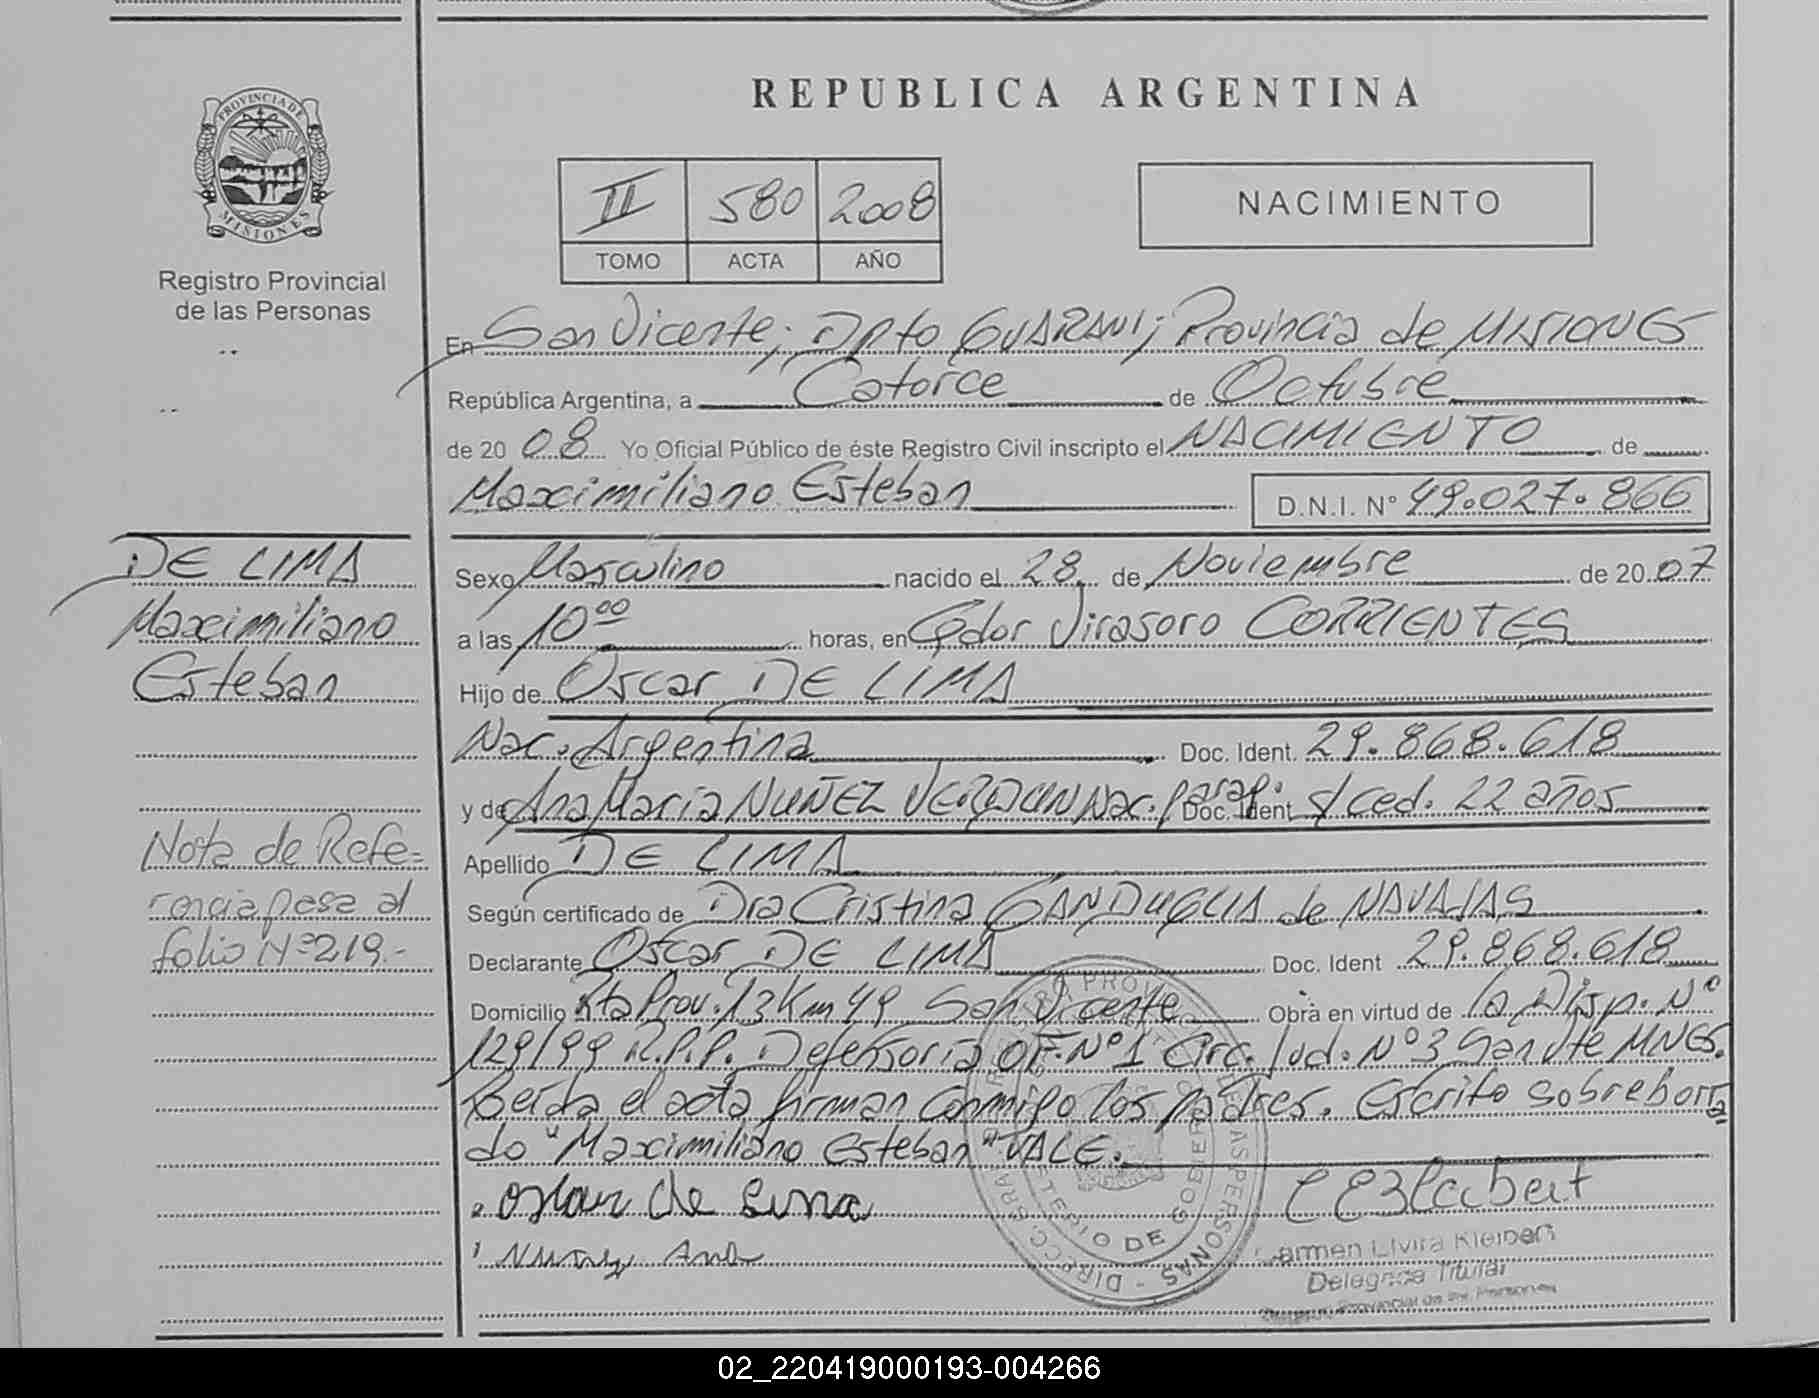 PROVINCIA DE
MISIONES
Registro Provincial
de las Personas
REPUBLICA ARGENTINA
II 580 2008
TOMO ACTA AÑO
NACIMIENTO
En San Vicente; Dpto GUARANI; Provincia de MISIONES
República Argentina, a Catorce de Octubre
de 20 08 Yo Oficial Público de éste Registro Civil inscripto el NACIMIENTO de
Maximiliano Esteban D.N.I. N° 49.027.866
DE LIMA
Maximiliano
Esteban
Sexo Masculino nacido el 28 de Noviembre de 20 07
a las 10 00 horas, en Gdor Virasoro CORRIENTES
Hijo de Oscar DE LIMA
Nac. Argentina Doc. Ident. 29.868.618
y de Ana Maria NUÑEZ VERDUN Nac. parag. Doc. Ident s/ced. 22 años
Apellido DE LIMA
Nota de Refe=
rencia pasa al
folio N° 219.-
Según certificado de Dra Cristina GANDUGLIA de NAVAJAS
Declarante Oscar DE LIMA Doc. Ident 29.868.618
Domicilio Rta Prov. 13 Km 49 San Vicente Obra en virtud de la Disp. N°
129/99 R.P.P. Defensoria Of. N° 1 Circ. Jud. N° 3 San Vte MNES.
Leida el acta firman conmigo los padres. Escrito sobreborra
do "Maximiliano Esteban" VALE.
Oscar De Lima
Nuñez Ana
Carmen Elvira Kleibert
Delegada Titular
Registro Provincial de las Personas
02_220419000193-004266